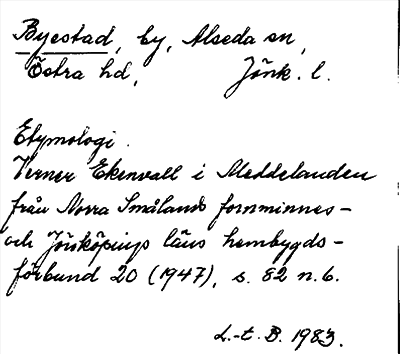 Byestad, by, Alseda sn,
Östra hd, Jönk. l.
Etymologi.
Verner Ekenvall i Meddelanden
från Norra Smålands fornminnes-
och Jönköpings läns hembygds-
förbund 20 (1947), s. 82 n. 6.
L.-t. B. 1983.